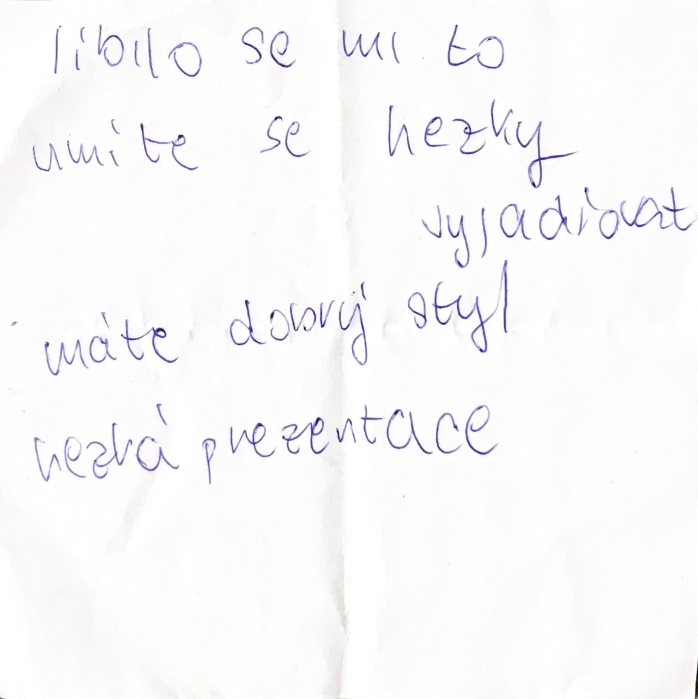 líbilo se mi to
umíte se hezky
vyjadřovat
máte dobrý styl
hezká prezentace